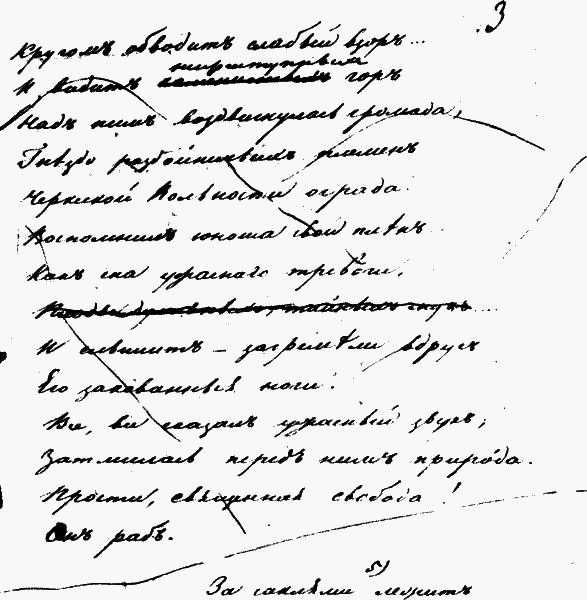 3
Кругомъ обводитъ слабый взоръ...
неприступныхъ
И видитъ горъ
Надъ нимъ воздвигнулась громада,
Гнѣздо разбойничьихъ племенъ
Черкеской вольности ограда.
Воспомнилъ юноша свой плѣнъ
Какъ сна ужаснаго тревоги,
И слышитъ — загремѣли вдругъ
Его закованныя ноги.
Все, все сказалъ ужасный звукъ;
Затмилась передъ нимъ природа.
Прости, священная свобода!
Онъ рабъ.
5)
За саклями лежитъ